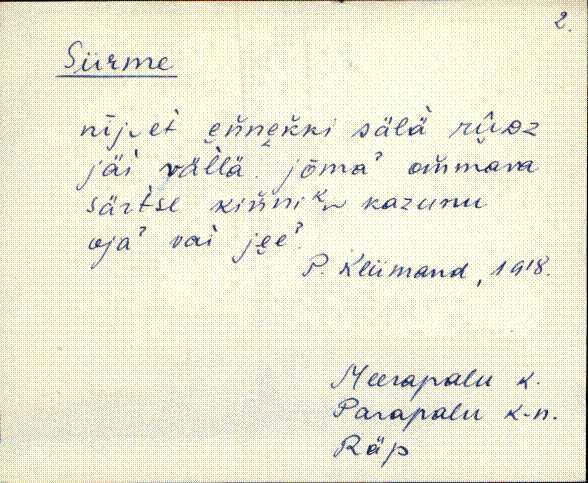 2.
Siirme
nīj‿et ęňnękki sälä rûoz
jäi vällä. jõma’ om̆mava
särtse kiňni ᴷ‿ kazunu
oja’ vai jęe’.
P. Kliimand, 1918.
Meerapalu k.
Parapalu k-n.
Räp